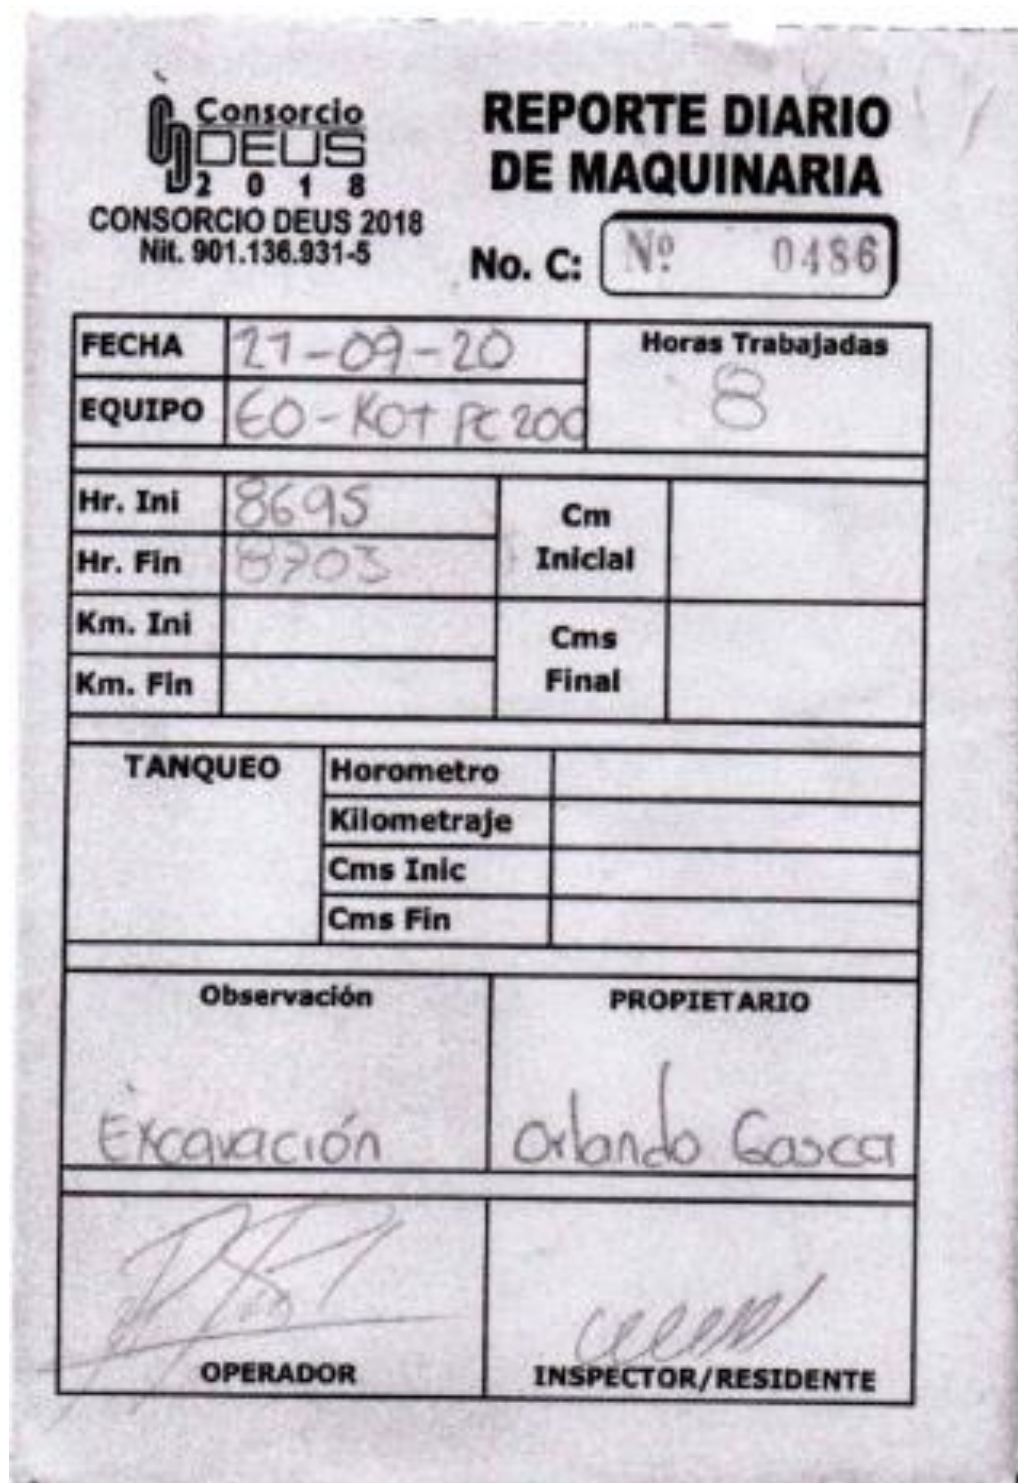 Consorcio
DEUS
2 0 1 8
CONSORCIO DEUS 2018
Nit. 901.136.931-5
REPORTE DIARIO
DE MAQUINARIA
No. C: Nº 0486
FECHA 21-09-20
Horas Trabajadas
8
EQUIPO EO-KOT PC 200
Hr. Ini 8695
Cm
Inicial
Hr. Fin 8703
Km. Ini
Cms
Final
Km. Fin
TANQUEO
Horometro
Kilometraje
Cms Inic
Cms Fin
Observación
Excavación
PROPIETARIO
Orlando Gasca
OPERADOR
INSPECTOR/RESIDENTE